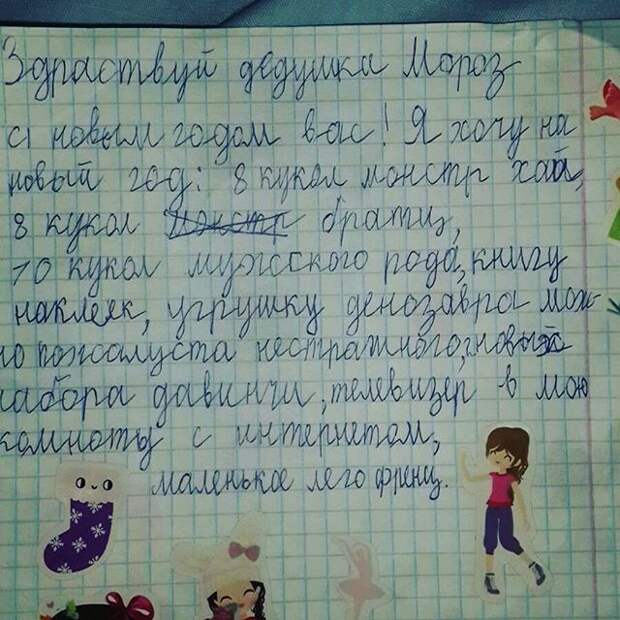 Здраствуй дедушка Мороз
с новым годом вас! Я хочу на
новый год: 8 кукол монстр хай,
8 кукол монстр братц,
10 кукол мужсского рода, книгу
наклеяк, угрушку денозавра мож-
но пожалуста нестражного,
набора давинчи, телевизер в мою
комноты с интернетом,
маленькое лего френц.